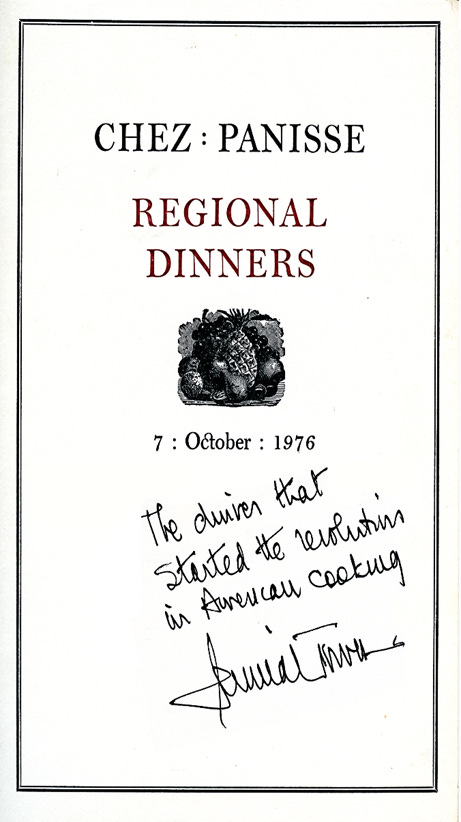 CHEZ : PANISSE
REGIONAL
DINNERS
7 : October : 1976
The dinner that
started the revolution
in American cooking
Jeremiah Tower